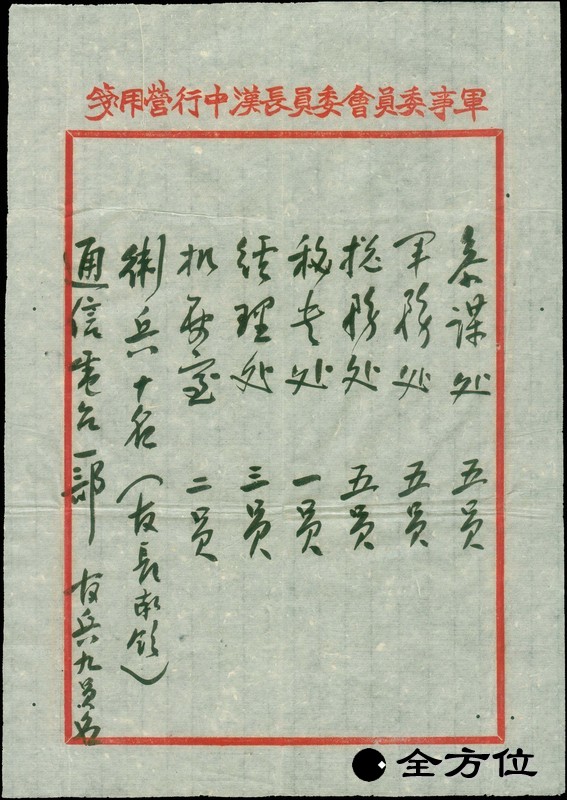 軍事委員會委員長漢中行營用箋
参謀处 五员
军務处 五员
総務处 五员
秘書处 一员
経理处 三员
机要室 二员
衛兵十名（友長彭钦）
通信電台一部 官兵九员名
全方位